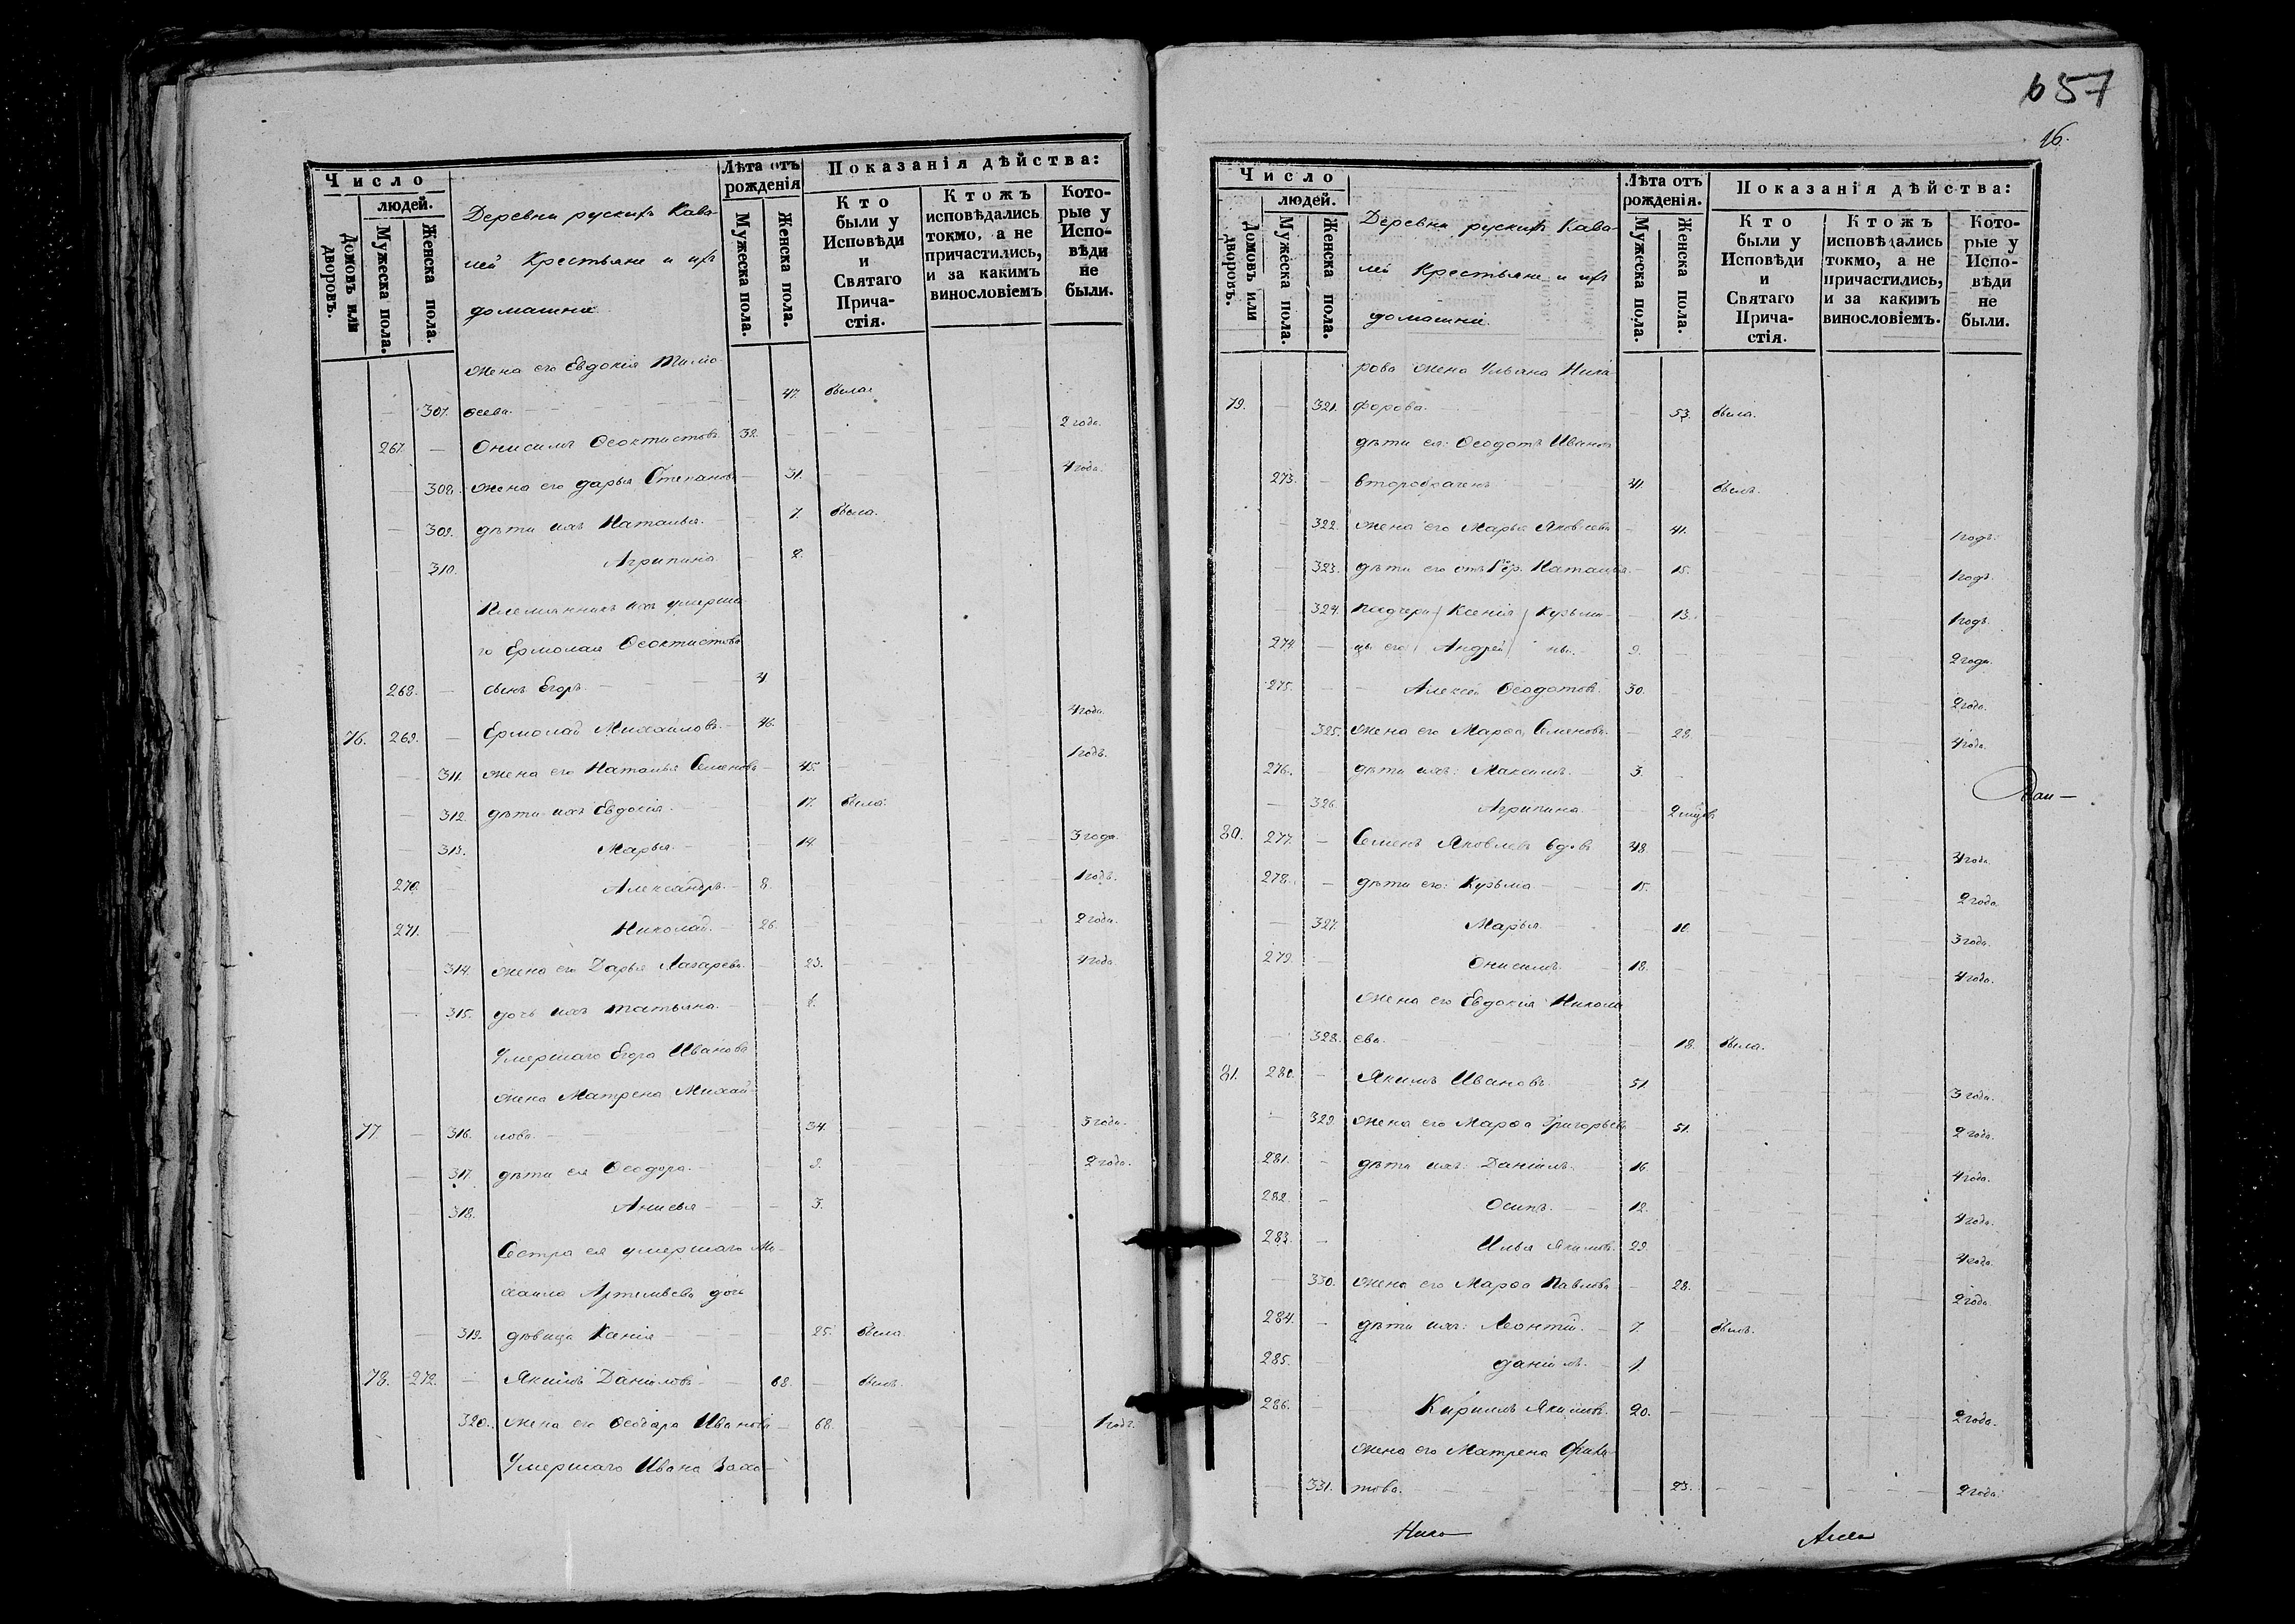 Число
людей.
Домовъ или дворовъ.
Мужеска пола.
Женска пола.
Деревни рускихъ Кава-
лей Крестьяне и ихъ
домашніе
Лѣта отъ рожденія
Мужеска пола.
Женска пола.
Показанія дѣйства:
Кто были у Исповѣди и Святаго Прича-стія.
Ктожъ исповѣдались токмо, а не причастились, и за какимъ винословіемъ
Кото-рые у Испо-вѣди не были.
жена его Евдокія Тимо-
307. ѳеева. 47. была.
267. — Онисимъ Ѳеоктистовъ 32. 2 года.
308. жена его дарья Степанова 31. 4 года.
309. дѣти ихъ Наталья. 7. была.
310. Агрипина 2.
Племянникъ ихъ умерша-
го Ермолая Ѳеоктистова
268. — сынъ Егоръ. 4
76. 269. — Ермолай Михайловъ. 46. 4 года.
311. жена его Наталья Семенова 45. 1 годъ.
312. дѣти ихъ Евдокія. 17. была.
313. Марья. 14. 3 года.
270. — Александръ. 8. 1 годъ.
271. — Николай. 26. 2 года.
314. жена его Дарья Лазарева. 23. 4 года.
315. дочь ихъ татьяна.
Умершаго Егора Иванова
жена Матрена Михай-
77. — 316. лова. 34. 3 года.
317. дѣти ея Ѳеодора. 8. 2 года.
318. Анисья 3.
Сестра ея умершаго Ми-
хаила Артемьева дочь
319. дѣвица Ксенія 25. была
78. 272. — Якимъ Даниловъ 68. — былъ.
320. жена его Ѳеодора Иванова 68. 1 годъ.
Умершаго Ивана Заха-
657
16.
Число
людей.
Домовъ или дворовъ.
Мужеска пола.
Женска пола.
Деревни рускихъ Кава-
лей Крестьяне и ихъ
домашніе.
Лѣта отъ рожденія.
Мужеска пола.
Женска пола.
Показанія дѣйства:
Кто были у Исповѣди и Святаго Прича-стія.
Ктожъ исповѣдались токмо, а не причастились, и за какимъ винословіемъ.
Кото-рые у Испо-вѣди не были.
рова жена Ульяна Ники-
79. — 321. форова. 53. была.
дѣти ея: Ѳеодотъ Ивановъ
273. — второбраченъ 41. былъ.
322. жена его Марья Яковлева 41. 1 годъ.
323. дѣти его отъ Наталья. 15. 1 годъ.
324. падчери- Ксенія Кузьми- 13. 1 годъ.
274. — цы его Андрей ны. 9. 2 года.
275. — Алексѣй Ѳеодотовъ. 30. 2 года.
325. жена его Марѳа Семенова. 28. 4 года.
276. — дѣти ихъ: Максимъ. 3.
326. Агрипина 2 мцев
80. 277. — Семенъ Яковлевъ вдовъ 48. 4 года
278. — дѣти его: Кузьма 15. 2 года
327. Марья. 10. 3 года.
279. — Онисимъ. 18. 4 года.
жена его Евдокія Никола-
328. ева. 18. была.
81. 280. — Якимъ Ивановъ. 51 3 года.
329. жена его Марѳа Григорьева 51. 2 года.
281. — дѣти ихъ: Даніилъ. 16. 4 года.
282. — Осипъ. 12. 4 года.
283. — Илья Якимовъ. 29. 4 года.
330. жена его Марѳа Павлова 28. 2 года.
284. — дѣти ихъ: Леонтій. 7. былъ.
285. — даніилъ. 1.
286. — Кирилъ Якимовъ. 20. 2 года.
жена его Матрена Фила-
331. това. 23. 2 года.